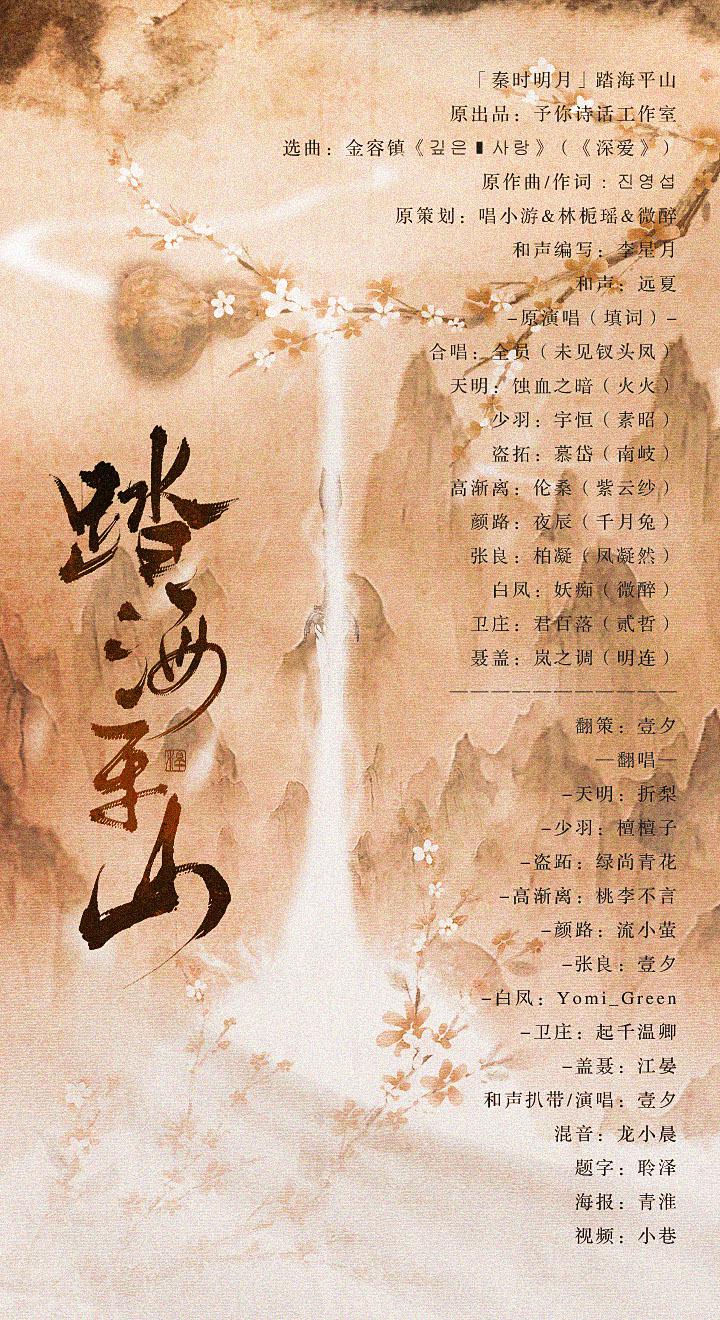 「秦时明月」踏海平山
原出品：予你诗话工作室
选曲：金容镇《깊은▮사랑》（《深爱》）
原作曲/作词：진영섭
原策划：唱小游&林栀瑶&微醉
和声编写：李星月
和声：远夏
–原演唱（填词）–
合唱：全员（未见钗头凤）
天明：蚀血之暗（火火）
少羽：宇恒（素昭）
盗拓：慕岱（南岐）
高渐离：伦桑（紫云纱）
颜路：夜辰（千月兔）
张良：柏凝（凤凝然）
白凤：妖痴（微醉）
卫庄：君百落（贰哲）
聂盖：岚之调（明连）
———————————
翻策：壹夕
—翻唱—
–天明：折梨
–少羽：檀檀子
–盗跖：绿尚青花
–高渐离：桃李不言
–颜路：流小萤
–张良：壹夕
–白凤：Yomi_Green
–卫庄：起千温卿
–盖聂：江晏
和声扒带/演唱：壹夕
混音：龙小晨
题字：聆泽
海报：青淮
视频：小巷
踏海平山